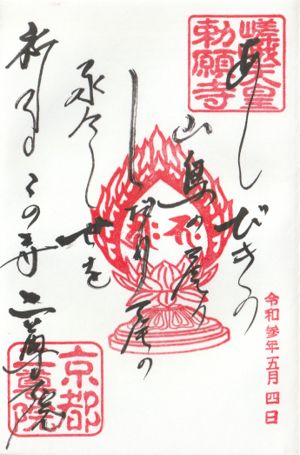 嵯峨天皇
勅願寺
あしびきの
山鳥の尾の
しだり尾の
永々し世を
祈るこの寺
二尊院
令和参年五月四日
京都
二尊院